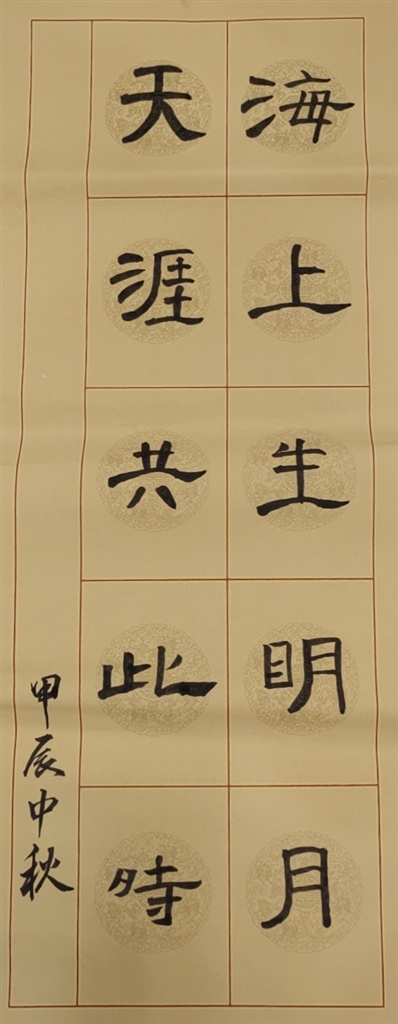 海上生明月
天涯共此時
甲辰中秋